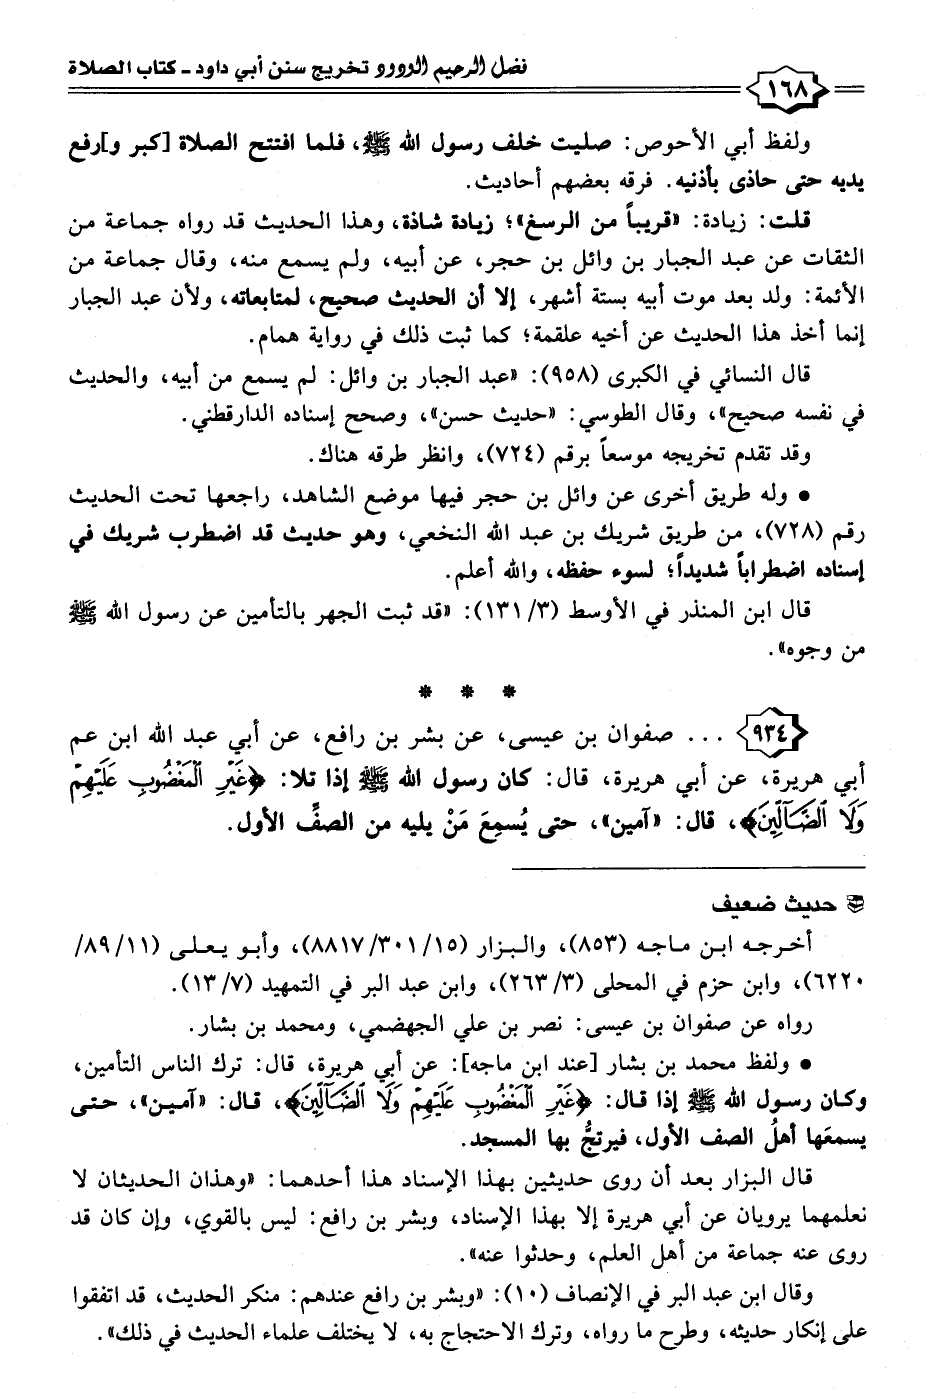 فضل الرحيم الودود تخريج سنن أبي داود - كتاب الصلاة
١٦٨
ولفظ أبي الأحوص: صليت خلف رسول الله ﷺ، فلما افتتح الصلاة [كبر و]رفع
يديه حتى حاذى بأذنيه. فرقه بعضهم أحاديث.
قلت: زيادة: «قريباً من الرسغ»؛ زيادة شاذة، وهذا الحديث قد رواه جماعة من
الثقات عن عبد الجبار بن وائل بن حجر، عن أبيه، ولم يسمع منه، وقال جماعة من
الأئمة: ولد بعد موت أبيه بستة أشهر، إلا أن الحديث صحيح، لمتابعاته، ولأن عبد الجبار
إنما أخذ هذا الحديث عن أخيه علقمة؛ كما ثبت ذلك في رواية همام.
قال النسائي في الكبرى (٩٥٨): «عبد الجبار بن وائل: لم يسمع من أبيه، والحديث
في نفسه صحيح»، وقال الطوسي: «حديث حسن»، وصحح إسناده الدارقطني.
وقد تقدم تخريجه موسعاً برقم (٧٢٤)، وانظر طرقه هناك.
• وله طريق أخرى عن وائل بن حجر فيها موضع الشاهد، راجعها تحت الحديث
رقم (٧٢٨)، من طريق شريك بن عبد الله النخعي، وهو حديث قد اضطرب شريك في
إسناده اضطراباً شديداً؛ لسوء حفظه، والله أعلم.
قال ابن المنذر في الأوسط (١٣١/٣): «قد ثبت الجهر بالتأمين عن رسول الله ﷺ
من وجوه».
* * *
٩٣٤ ... صفوان بن عيسى، عن بشر بن رافع، عن أبي عبد الله ابن عم
أبي هريرة، عن أبي هريرة، قال: كان رسول الله ﷺ إذا تلا: ﴿غَيْرِ ٱلْمَغْضُوبِ عَلَيْهِمْ
وَلَا ٱلضَّآلِّينَ﴾، قال: «آمين»، حتى يُسمِعَ مَنْ يليه من الصفِّ الأول.
حديث ضعيف
أخرجه ابن ماجه (٨٥٣)، والبزار (٨٨١٧/٣٠١/١٥)، وأبو يعلى (٨٩/١١/
٦٢٢٠)، وابن حزم في المحلى (٢٦٣/٣)، وابن عبد البر في التمهيد (١٣/٧).
رواه عن صفوان بن عيسى: نصر بن علي الجهضمي، ومحمد بن بشار.
• ولفظ محمد بن بشار [عند ابن ماجه]: عن أبي هريرة، قال: ترك الناس التأمين،
وكان رسول الله ﷺ إذا قال: ﴿غَيْرِ ٱلْمَغْضُوبِ عَلَيْهِمْ وَلَا ٱلضَّآلِّينَ﴾، قال: «آمين»، حتى
يسمعَها أهلُ الصف الأول، فيرتجُّ بها المسجد.
قال البزار بعد أن روى حديثين بهذا الإسناد هذا أحدهما: «وهذان الحديثان لا
نعلمهما يرويان عن أبي هريرة إلا بهذا الإسناد، وبشر بن رافع: ليس بالقوي، وإن كان قد
روى عنه جماعة من أهل العلم، وحدثوا عنه».
وقال ابن عبد البر في الإنصاف (١٠): «وبشر بن رافع عندهم: منكر الحديث، قد اتفقوا
على إنكار حديثه، وطرح ما رواه، وترك الاحتجاج به، لا يختلف علماء الحديث في ذلك».